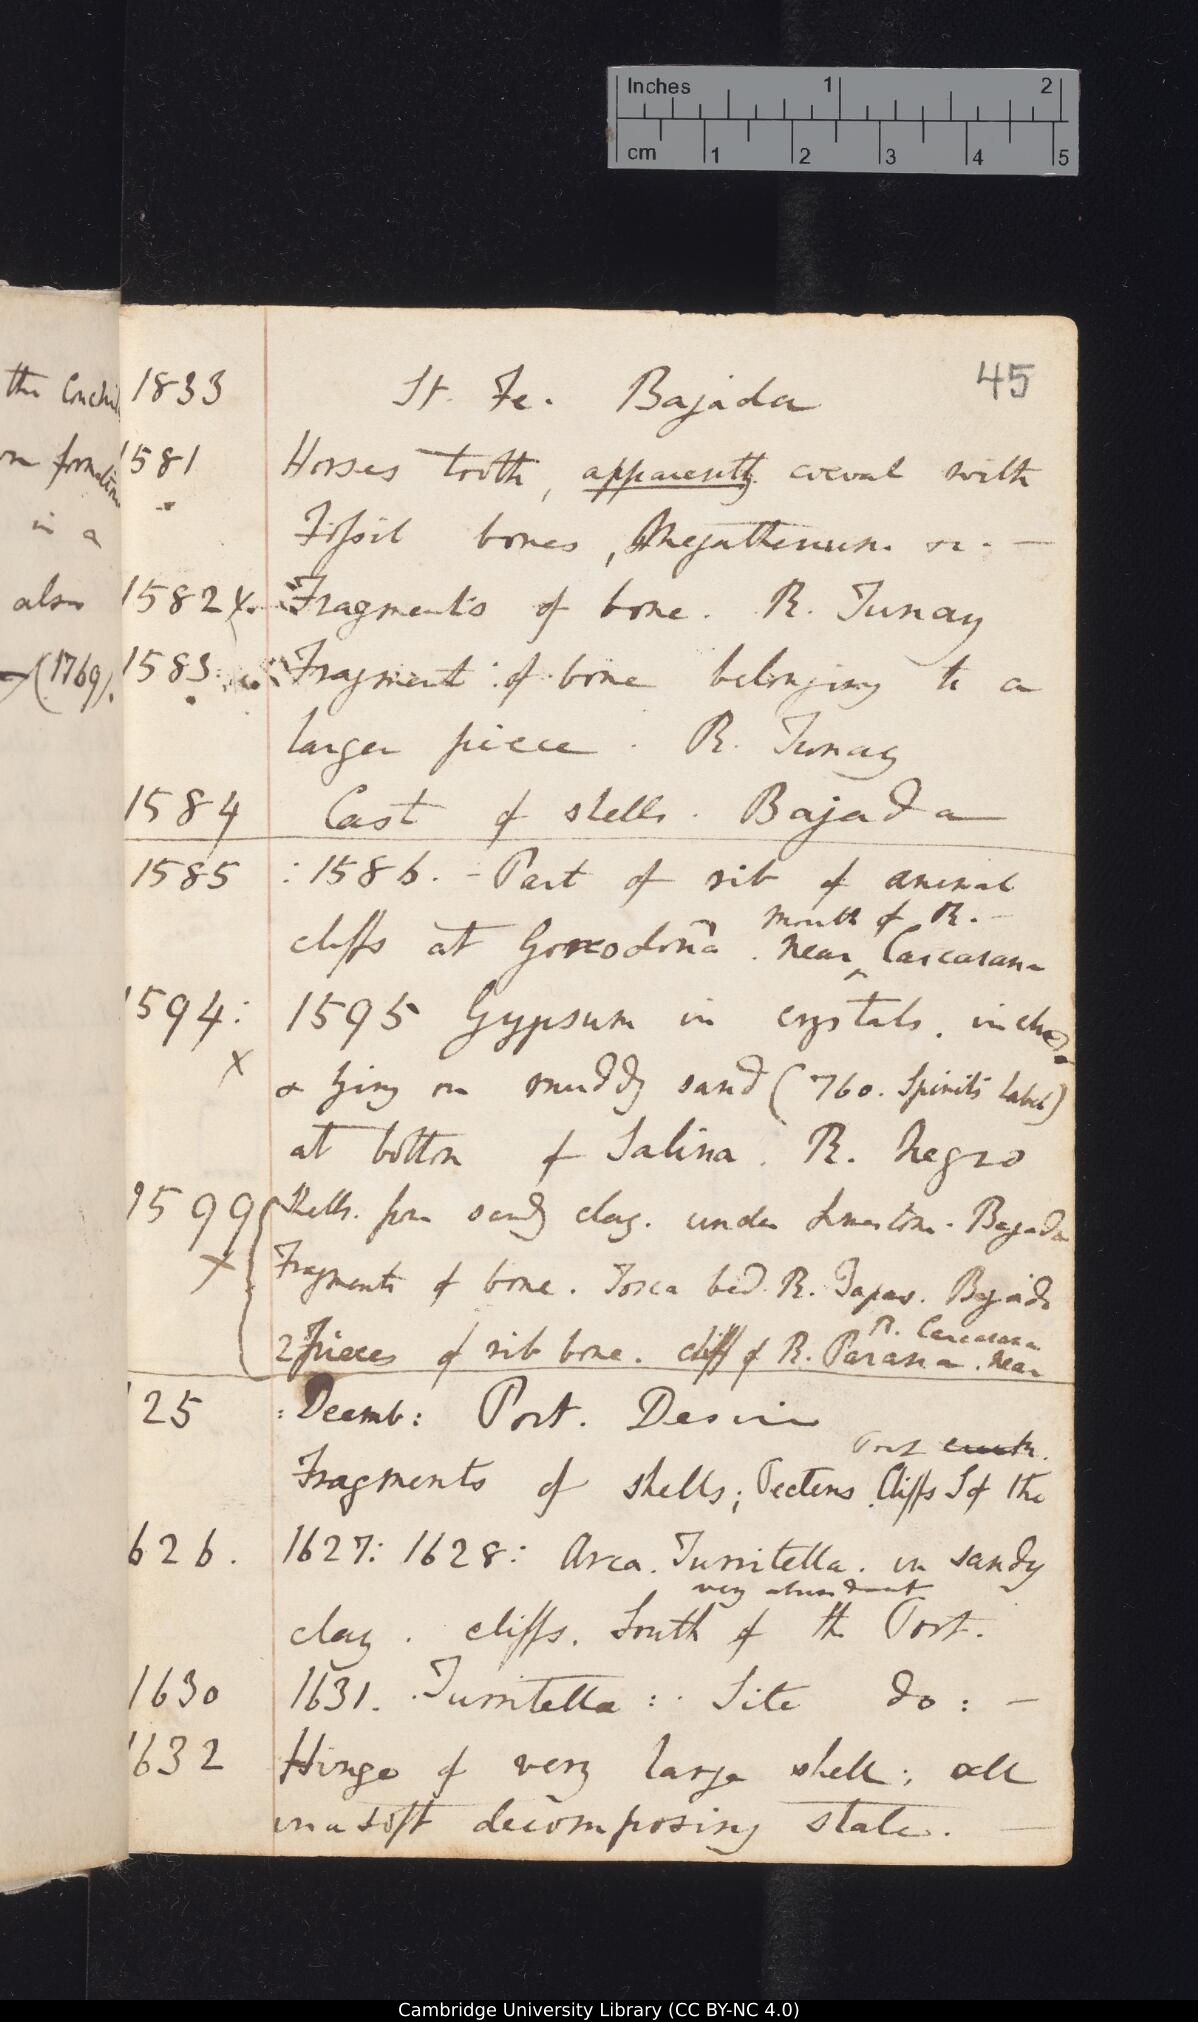 Inches 1 2
cm 1 2 3 4 5
45
the Conchi
1833 St. Fe. Bajada
formation
1581 Horses tooth, apparently coeval with
in a
Fossil bones, Megatherium &c. —
also
1582 X. Fragments of bone. R. Tunay
(1769).
1583. Fragment of bone belonging to a
larger piece. R. Tunay
1584 Cast of shells. Bajada —
1585 : 1586. - Part of rib of animal
mouth of R. -
cliffs at Gorodona. near ^ Carcarana
1594: 1595 Gypsum in crystals. inches
X
& lying on muddy sand (760. Spirits label)
at bottom of Salina. R. Negro
1599 { Shells. from sandy clay. under Limestone. Bajada
X
Fragments of bone. Tosca bed. R. Tapas. Bajada
R. Carcarana
2 Pieces of rib bone. cliff of R. Parana. near
25 : Decemb: Port. Desire
Port
Fragments of shells; Pectens. Cliffs S of the
626. 1627: 1628: Arca. Turritella. in sandy
very abundant
clay. cliffs. South of the Port.
1630 1631. Turritella: Site do: —
1632 Hinge of very large shell; all
in a soft decomposing state. —
Cambridge University Library (CC BY-NC 4.0)